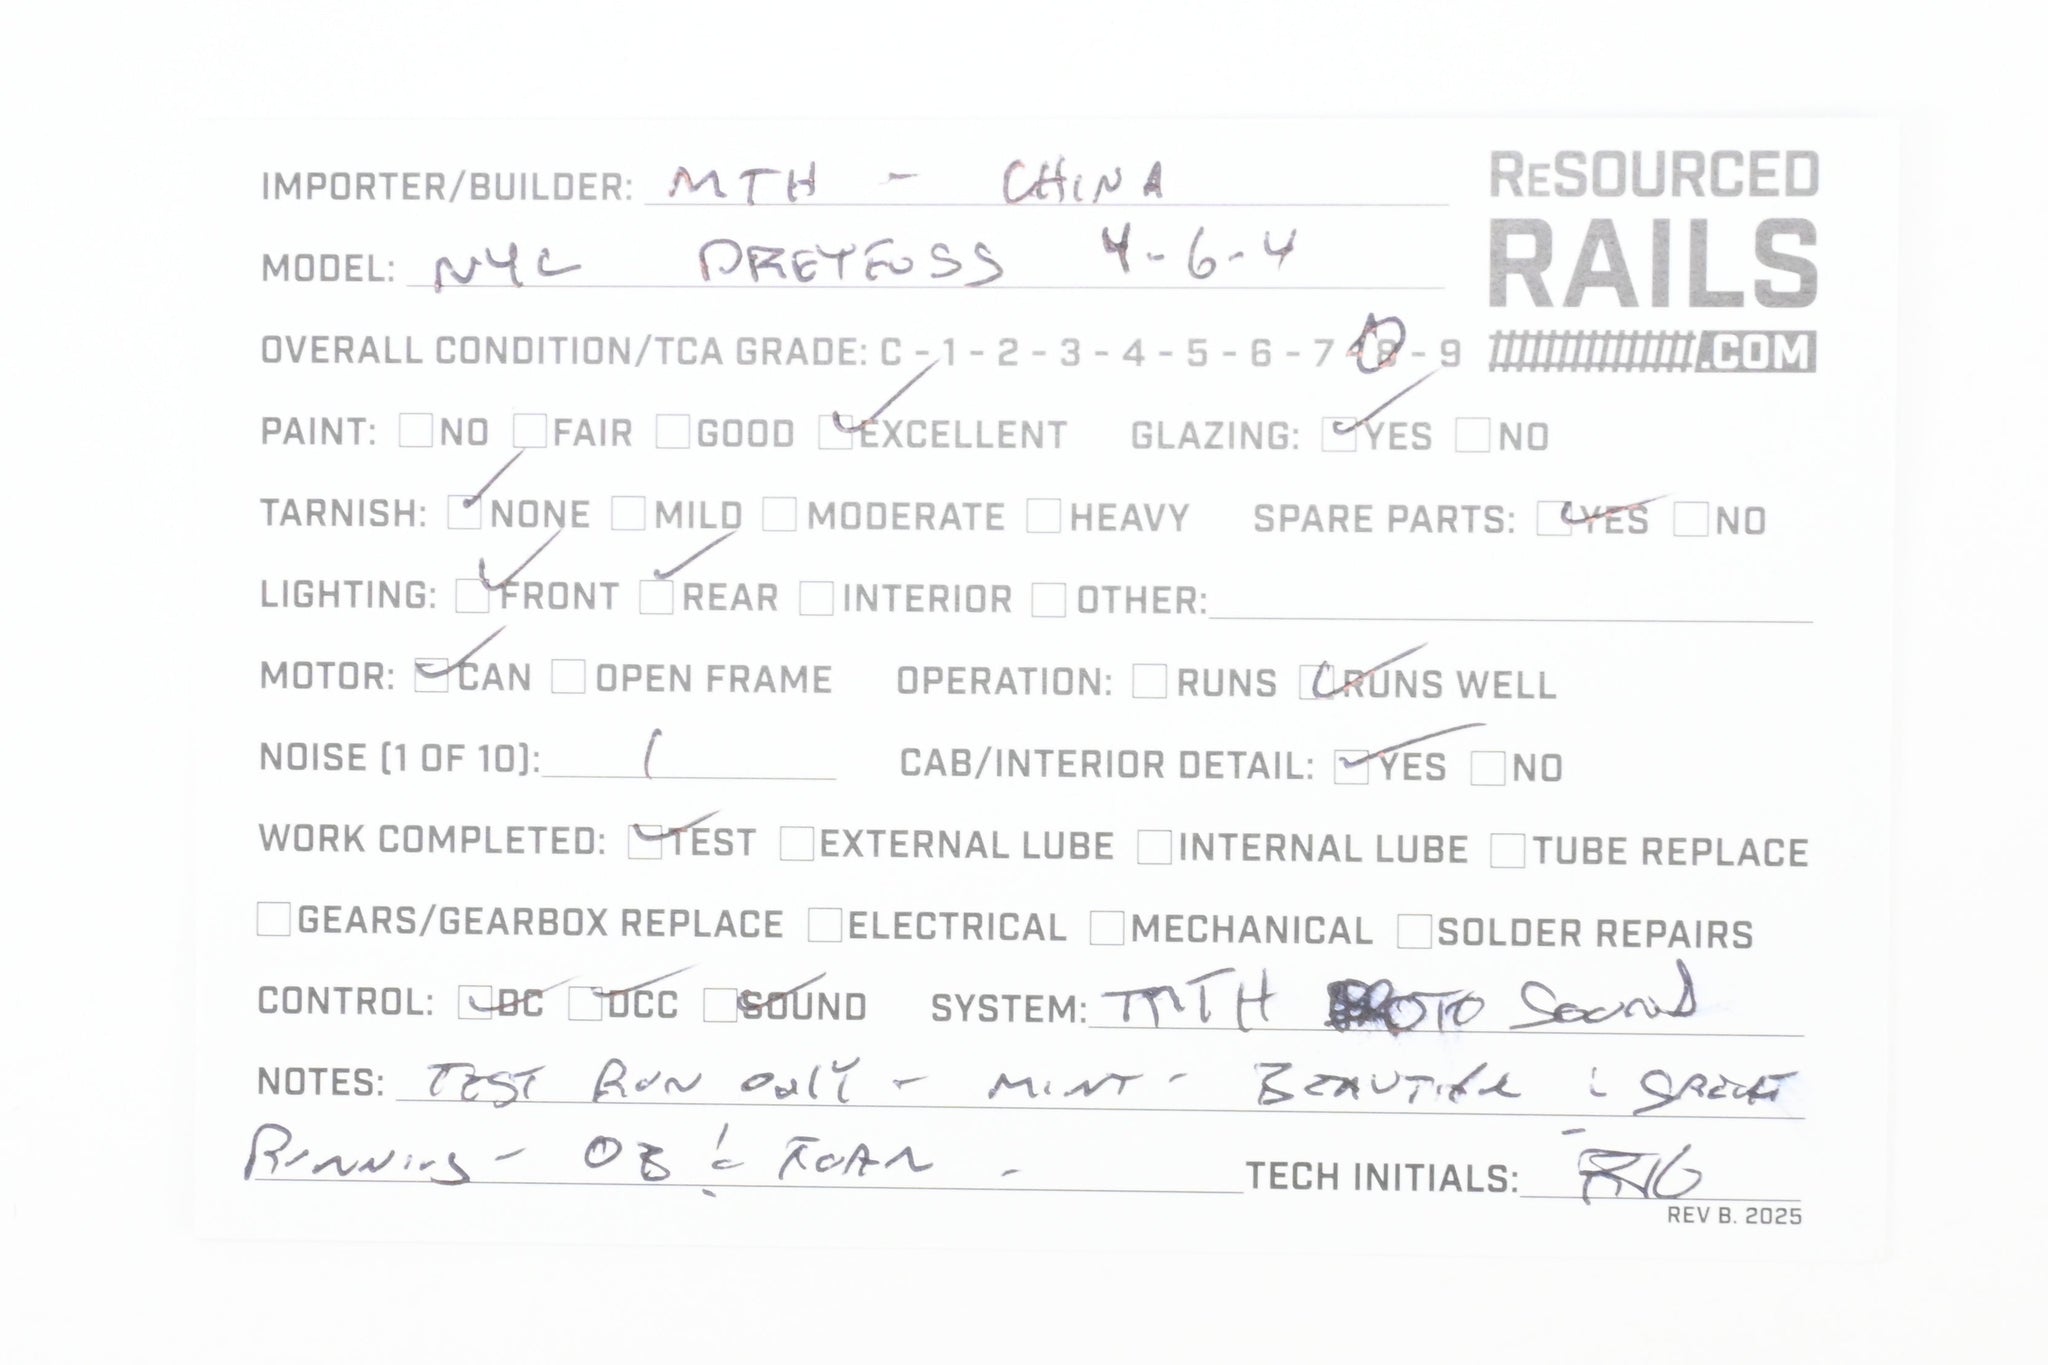 IMPORTER/BUILDER: MTH - CHINA
RESOURCED
RAILS
.COM
MODEL: NYC DREYFUSS 4-6-4
OVERALL CONDITION/TCA GRADE: C - 1 - 2 - 3 - 4 - 5 - 6 - 7 - 8 - 9
PAINT: NO FAIR GOOD EXCELLENT GLAZING: YES NO
TARNISH: NONE MILD MODERATE HEAVY SPARE PARTS: YES NO
LIGHTING: FRONT REAR INTERIOR OTHER:
MOTOR: CAN OPEN FRAME OPERATION: RUNS RUNS WELL
NOISE (1 OF 10): 1 CAB/INTERIOR DETAIL: YES NO
WORK COMPLETED: TEST EXTERNAL LUBE INTERNAL LUBE TUBE REPLACE
GEARS/GEARBOX REPLACE ELECTRICAL MECHANICAL SOLDER REPAIRS
CONTROL: DC DCC SOUND SYSTEM: MTH PROTO SOUND
NOTES: TEST RUN ONLY - MINT - BEAUTIFUL & GREAT
RUNNING - OB & FOAM - TECH INITIALS:
REV B. 2025